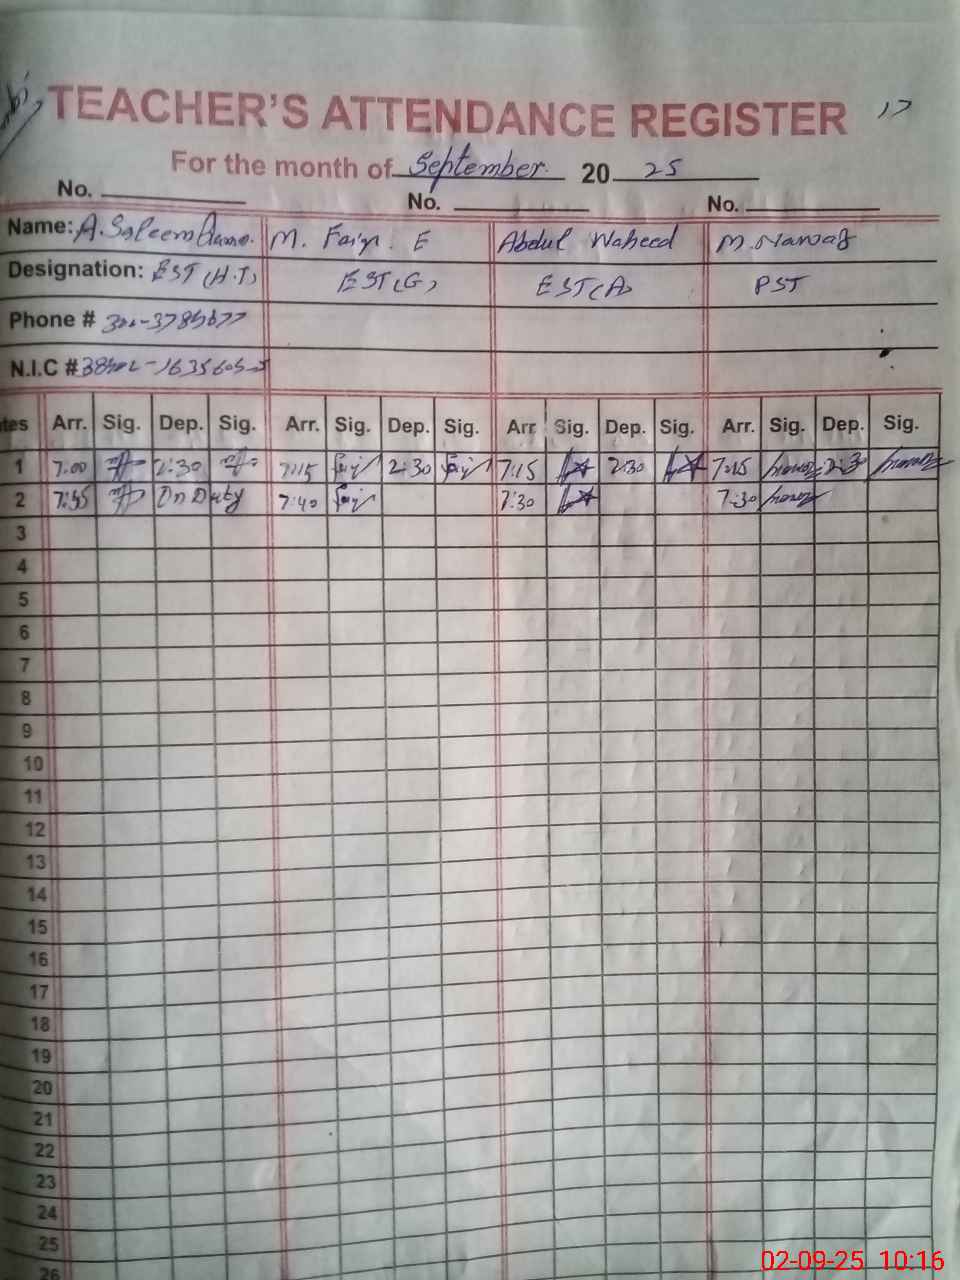 17
TEACHER'S ATTENDANCE REGISTER
For the month of September 2025
No. No. No.
Name: A. Saleem M. Faiz. E Abdul Waheed M. Nawaz
Designation: EST (H.T) EST (G) EST (A) PST
Phone #
N.I.C #
Arr. Sig. Dep. Sig. Arr. Sig. Dep. Sig. Arr Sig. Dep. Sig. Arr. Sig. Dep. Sig.
1 7:00 2:30 7:15 2:30 7:15 2:30 7:15 2:30
2 7:35 On Duty 7:40 7:30 7:30
3
4
5
6
7
8
9
10
11
12
13
14
15
16
17
18
19
20
21
22
23
24
25
26
02-09-25 10:16